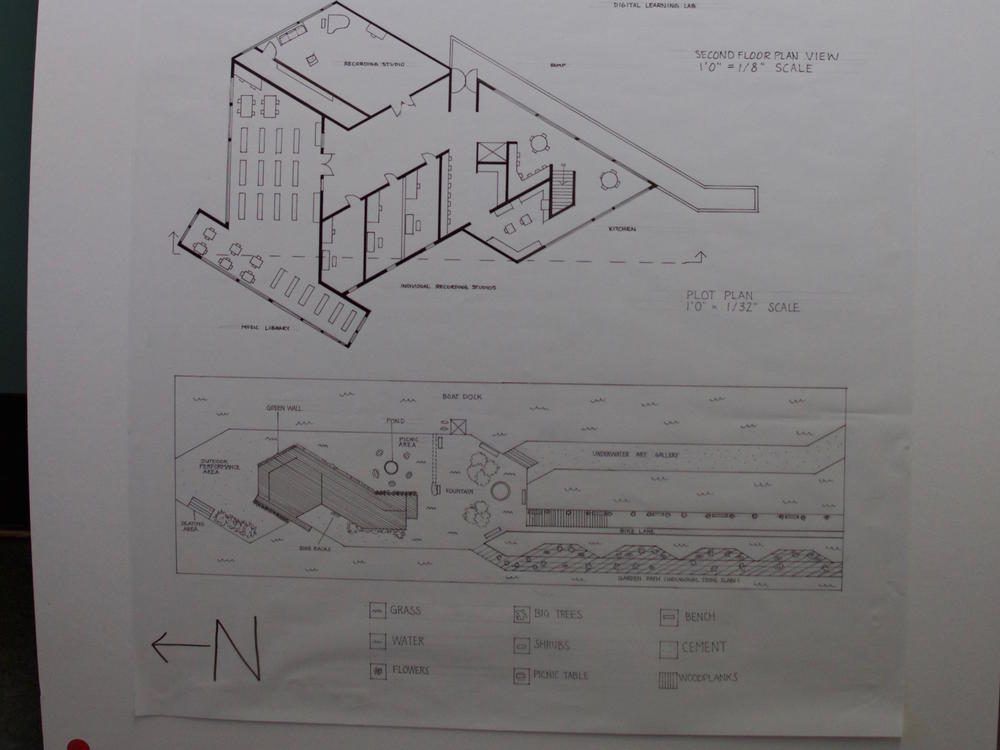 DIGITAL LEARNING LAB
SECOND FLOOR PLAN VIEW
1'0" = 1/8" SCALE
RAMP
RECORDING STUDIO
KITCHEN
INDIVIDUAL RECORDING STUDIOS
MUSIC LIBRARY
PLOT PLAN
1'0" = 1/32" SCALE
BOAT DOCK
GREEN WALL
POND
PICNIC
AREA
OUTDOOR
PERFORMANCE
AREA
UNDERWATER ART GALLERY
FOUNTAIN
SEATING
AREA
BIKE RACKS
BIKE LANE
GARDEN PATH
N
GRASS
WATER
FLOWERS
BIG TREES
SHRUBS
PICNIC TABLE
BENCH
CEMENT
WOODPLANKS